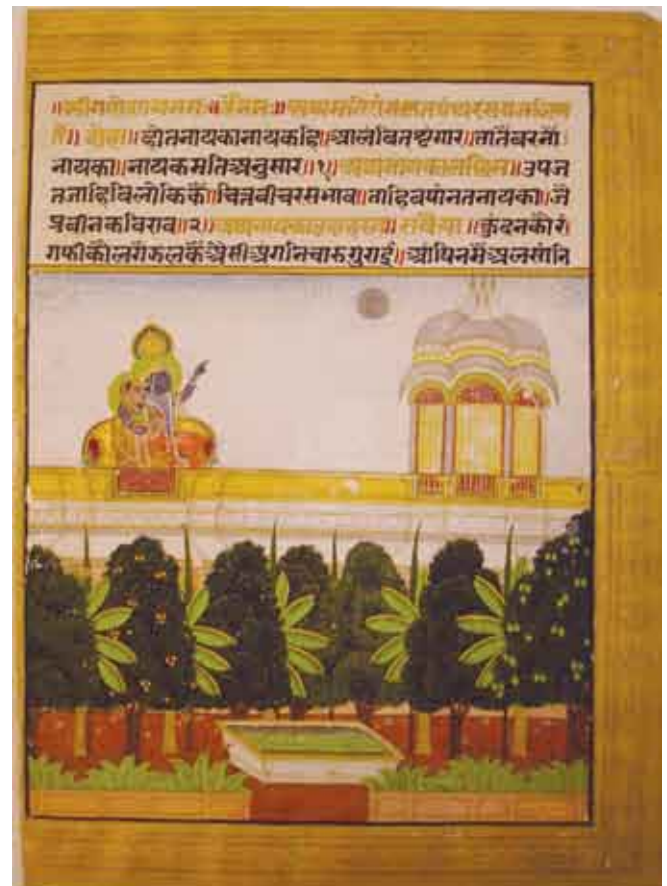 ॥श्रीगणेशायनमः॥
दोहा॥होतनायकानायकहि॥आलंबितशृंगार॥तातैबरनौं
नायका॥नायकमतिअनुसार॥१॥अथनायकालछिन॥उपज
तजाहिबिलोकिकैं॥चित्तबीचरसभाव॥ताहिबषांनतनायका॥जे
प्रबीनकविराव॥२॥सवैया॥कुंदनकौरं
गफीकौलगैझलकैअैसीअंगनिचारुगुराई॥आंषिनमैंअलसांनि